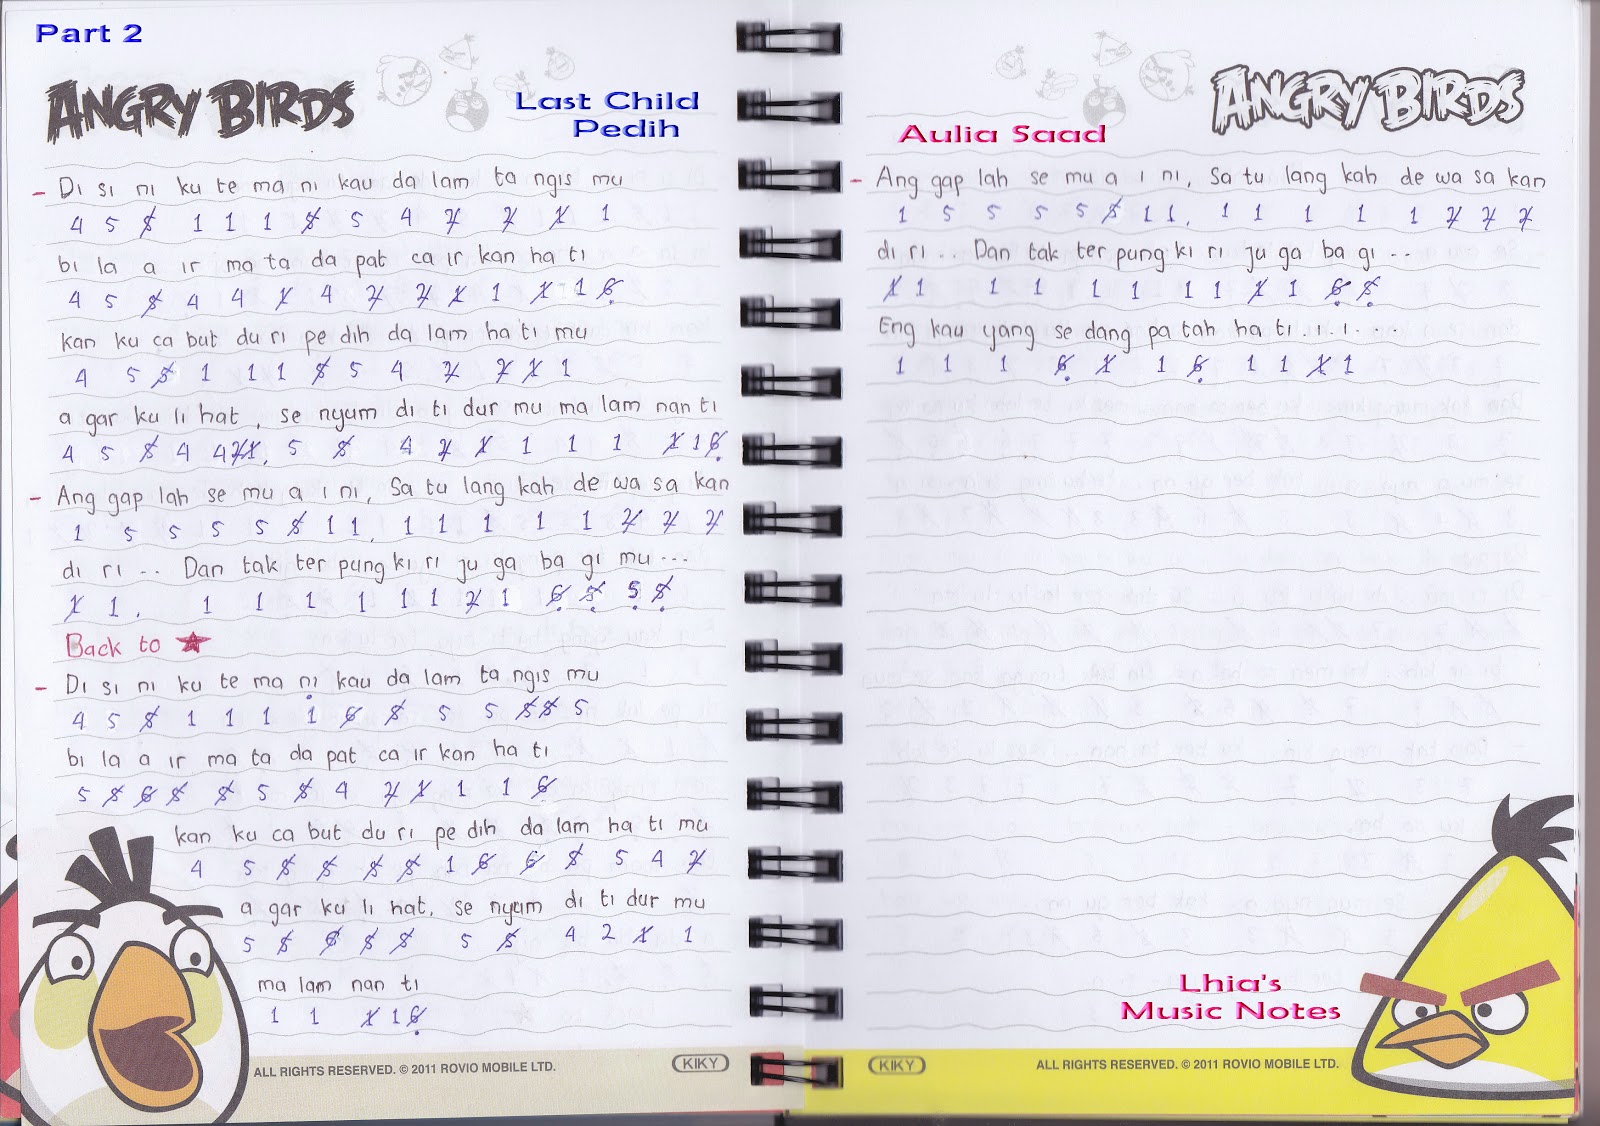 Part 2
ANGRY BIRDS
Last Child
Pedih
- Di si ni ku te ma ni kau da lam ta ngis mu
4 5 5̸ 1 1 1 5̸ 5 4 2̸ 2̸ 1̸ 1
bi la a ir ma ta da pat ca ir kan ha ti
4 5 5̸ 4 4 1̸ 4 2̸ 2̸ 1̸ 1 1̸ 1 6̸̣
kan ku ca but du ri pe dih da lam ha ti mu
4 5 5̸ 1 1 1 5̸ 5 4 2̸ 2̸ 1̸ 1
a gar ku li hat, se nyum di ti dur mu ma lam nan ti
4 5 5̸ 4 4 2̸ 1̸, 5 5̸ 4 2̸ 1̸ 1 1 1 1̸ 1 6̸̣
- Ang gap lah se mu a i ni, Sa tu lang kah de wa sa kan
1 5 5 5 5 5̸ 1 1, 1 1 1 1 1 2̸ 2̸ 2̸
di ri .. Dan tak ter pung ki ri ju ga ba gi mu ...
1̸ 1 . 1 1 1 1 1 1 2̸ 1 6̸̣ 5̸̣ 5̣ 5̸̣
Back to ★
- Di si ni ku te ma ni kau da lam ta ngis mu
4 5 5̸ 1 1 1 1̇ 6̸ 5̸ 5 5 5̸ 5̸ 5
bi la a ir ma ta da pat ca ir kan ha ti
5 5̸ 6̸ 5̸ 5̸ 5 5̸ 4 2̸ 1̸ 1 1 6̸̣
kan ku ca but du ri pe dih da lam ha ti mu
4 5 5̸ 5̸ 5̸ 5̸ 1 6̸ 6̸ 5̸ 5 4 2̸
a gar ku li hat, se nyum di ti dur mu
5 5̸ 6̸ 5̸ 5̸ 5 5̸ 4 2 1̸ 1
ma lam nan ti
1 1 1̸ 1 6̸̣
ALL RIGHTS RESERVED. © 2011 ROVIO MOBILE LTD.
KIKY
ANGRY BIRDS
Aulia Saad
- Ang gap lah se mu a i ni, Sa tu lang kah de wa sa kan
1 5 5 5 5 5̸ 1 1, 1 1 1 1 1 2̸ 2̸ 2̸
di ri .. Dan tak ter pung ki ri ju ga ba gi ..
1̸ 1 1 1 1 1 1 1 1̸ 1 6̸̣ 5̸̣
Eng kau yang se dang pa tah ha ti . i . i . ...
1 1 1 6̸̣ 1̸ 1 6̸̣ 1 1 1̸ 1
Lhia's
Music Notes
KIKY
ALL RIGHTS RESERVED. © 2011 ROVIO MOBILE LTD.